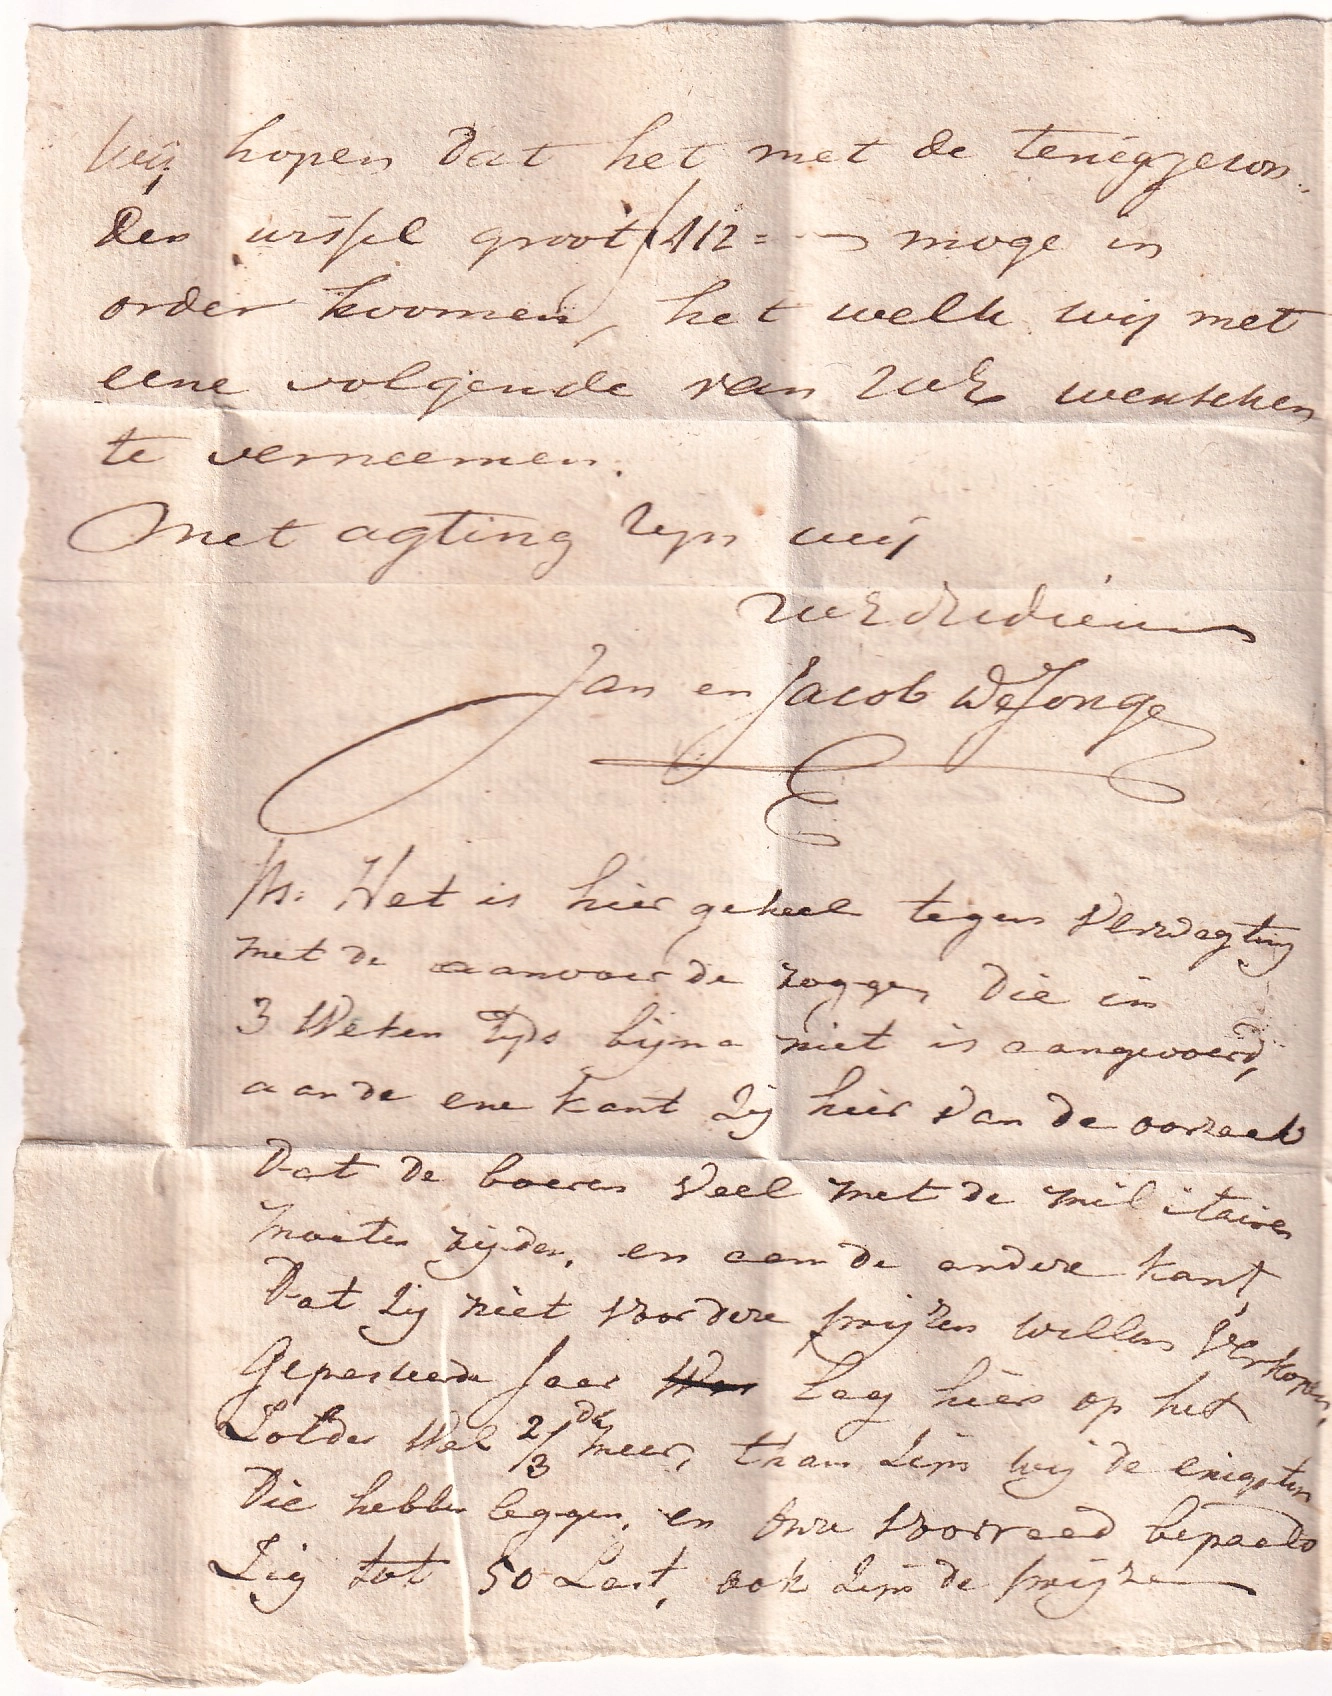 Wij hopen dat het met de terúggeson„
den wissel groot ƒ 412 = — moge in
order koomen, het welk wij met
eene volgende van UWE wenschen
te verneemen.
Met agting zijn wij
UWE DWdienaren
Jan en Jacob De Jonge
Ps. Het is hier geheel tegen verwagting
met de aanvoer de rogge, die in
3 Weken tyds bijna niet is aangevoerd,
aan de ene kant zij hier van de oorzaak
Dat de boeren veel met de militairen
moeten rijden, en aan de andere kant,
Dat zij niet voor deze prijzen willen verkopen,
Gepasseerde Jaar lag hier op het
Zolder wel 2/3 de meer, thans zijn wij de enigsten
Die hebben leggen, en onze voorraad bepaald
Zig tot 50 Last, ook zijn de prijze